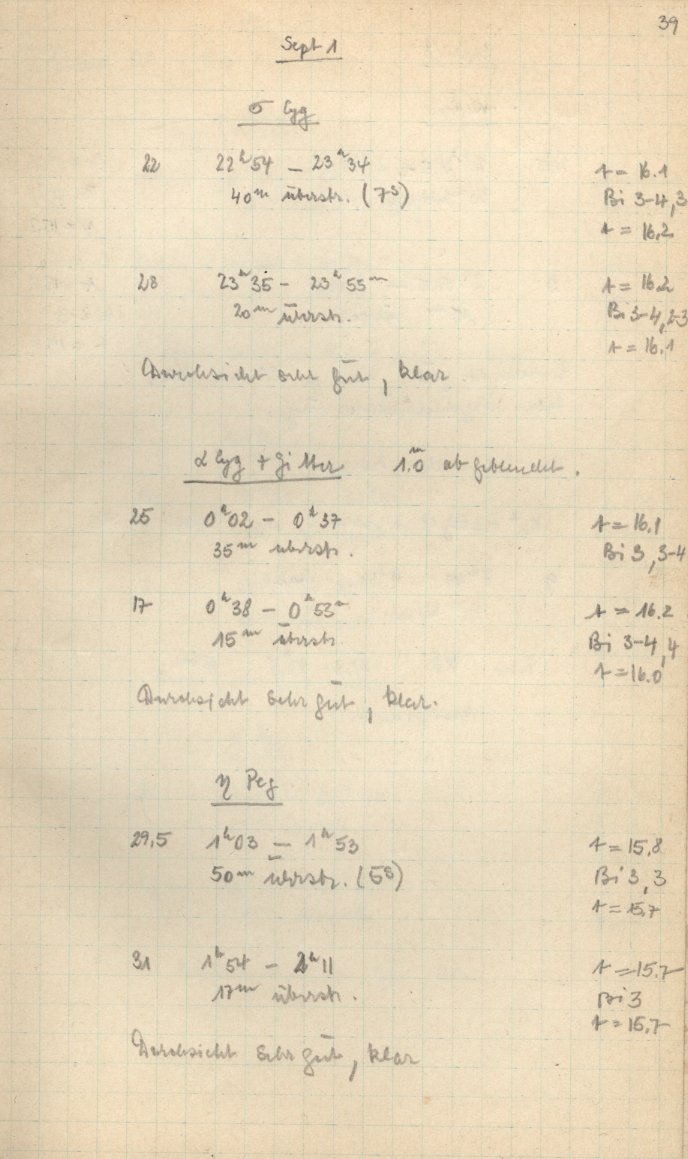 39
Sept 1
σ Cyg
22 22ʰ54 – 23ʰ34 t = 16.1
40ᵐ überstr. (7ˢ) Bi 3-4, 3
t = 16,2
28 23ʰ35 – 23ʰ55ᵐ t = 16.2
20ᵐ überstr. Bi 3-4, 2-3
t = 16.1
Durchsicht sehr gut, klar
α Cyg + Gitter 1ᵐ.0 abgeblendet.
25 0ʰ02 – 0ʰ37 t = 16.1
35ᵐ überstr. Bi 3, 3-4
17 0ʰ38 – 0ʰ53ᵐ t = 16.2
15ᵐ überstr. Bi 3-4, 4
t = 16.0
Durchsicht sehr gut, klar.
η Peg
29,5 1ʰ03 – 1ʰ53 t = 15,8
50ᵐ überstr. (5ˢ) Bi 3, 3
t = 15,7
31 1ʰ54 – 2ʰ11 t = 15.7
17ᵐ überstr. Bi 3
t = 15,7
Durchsicht sehr gut, klar